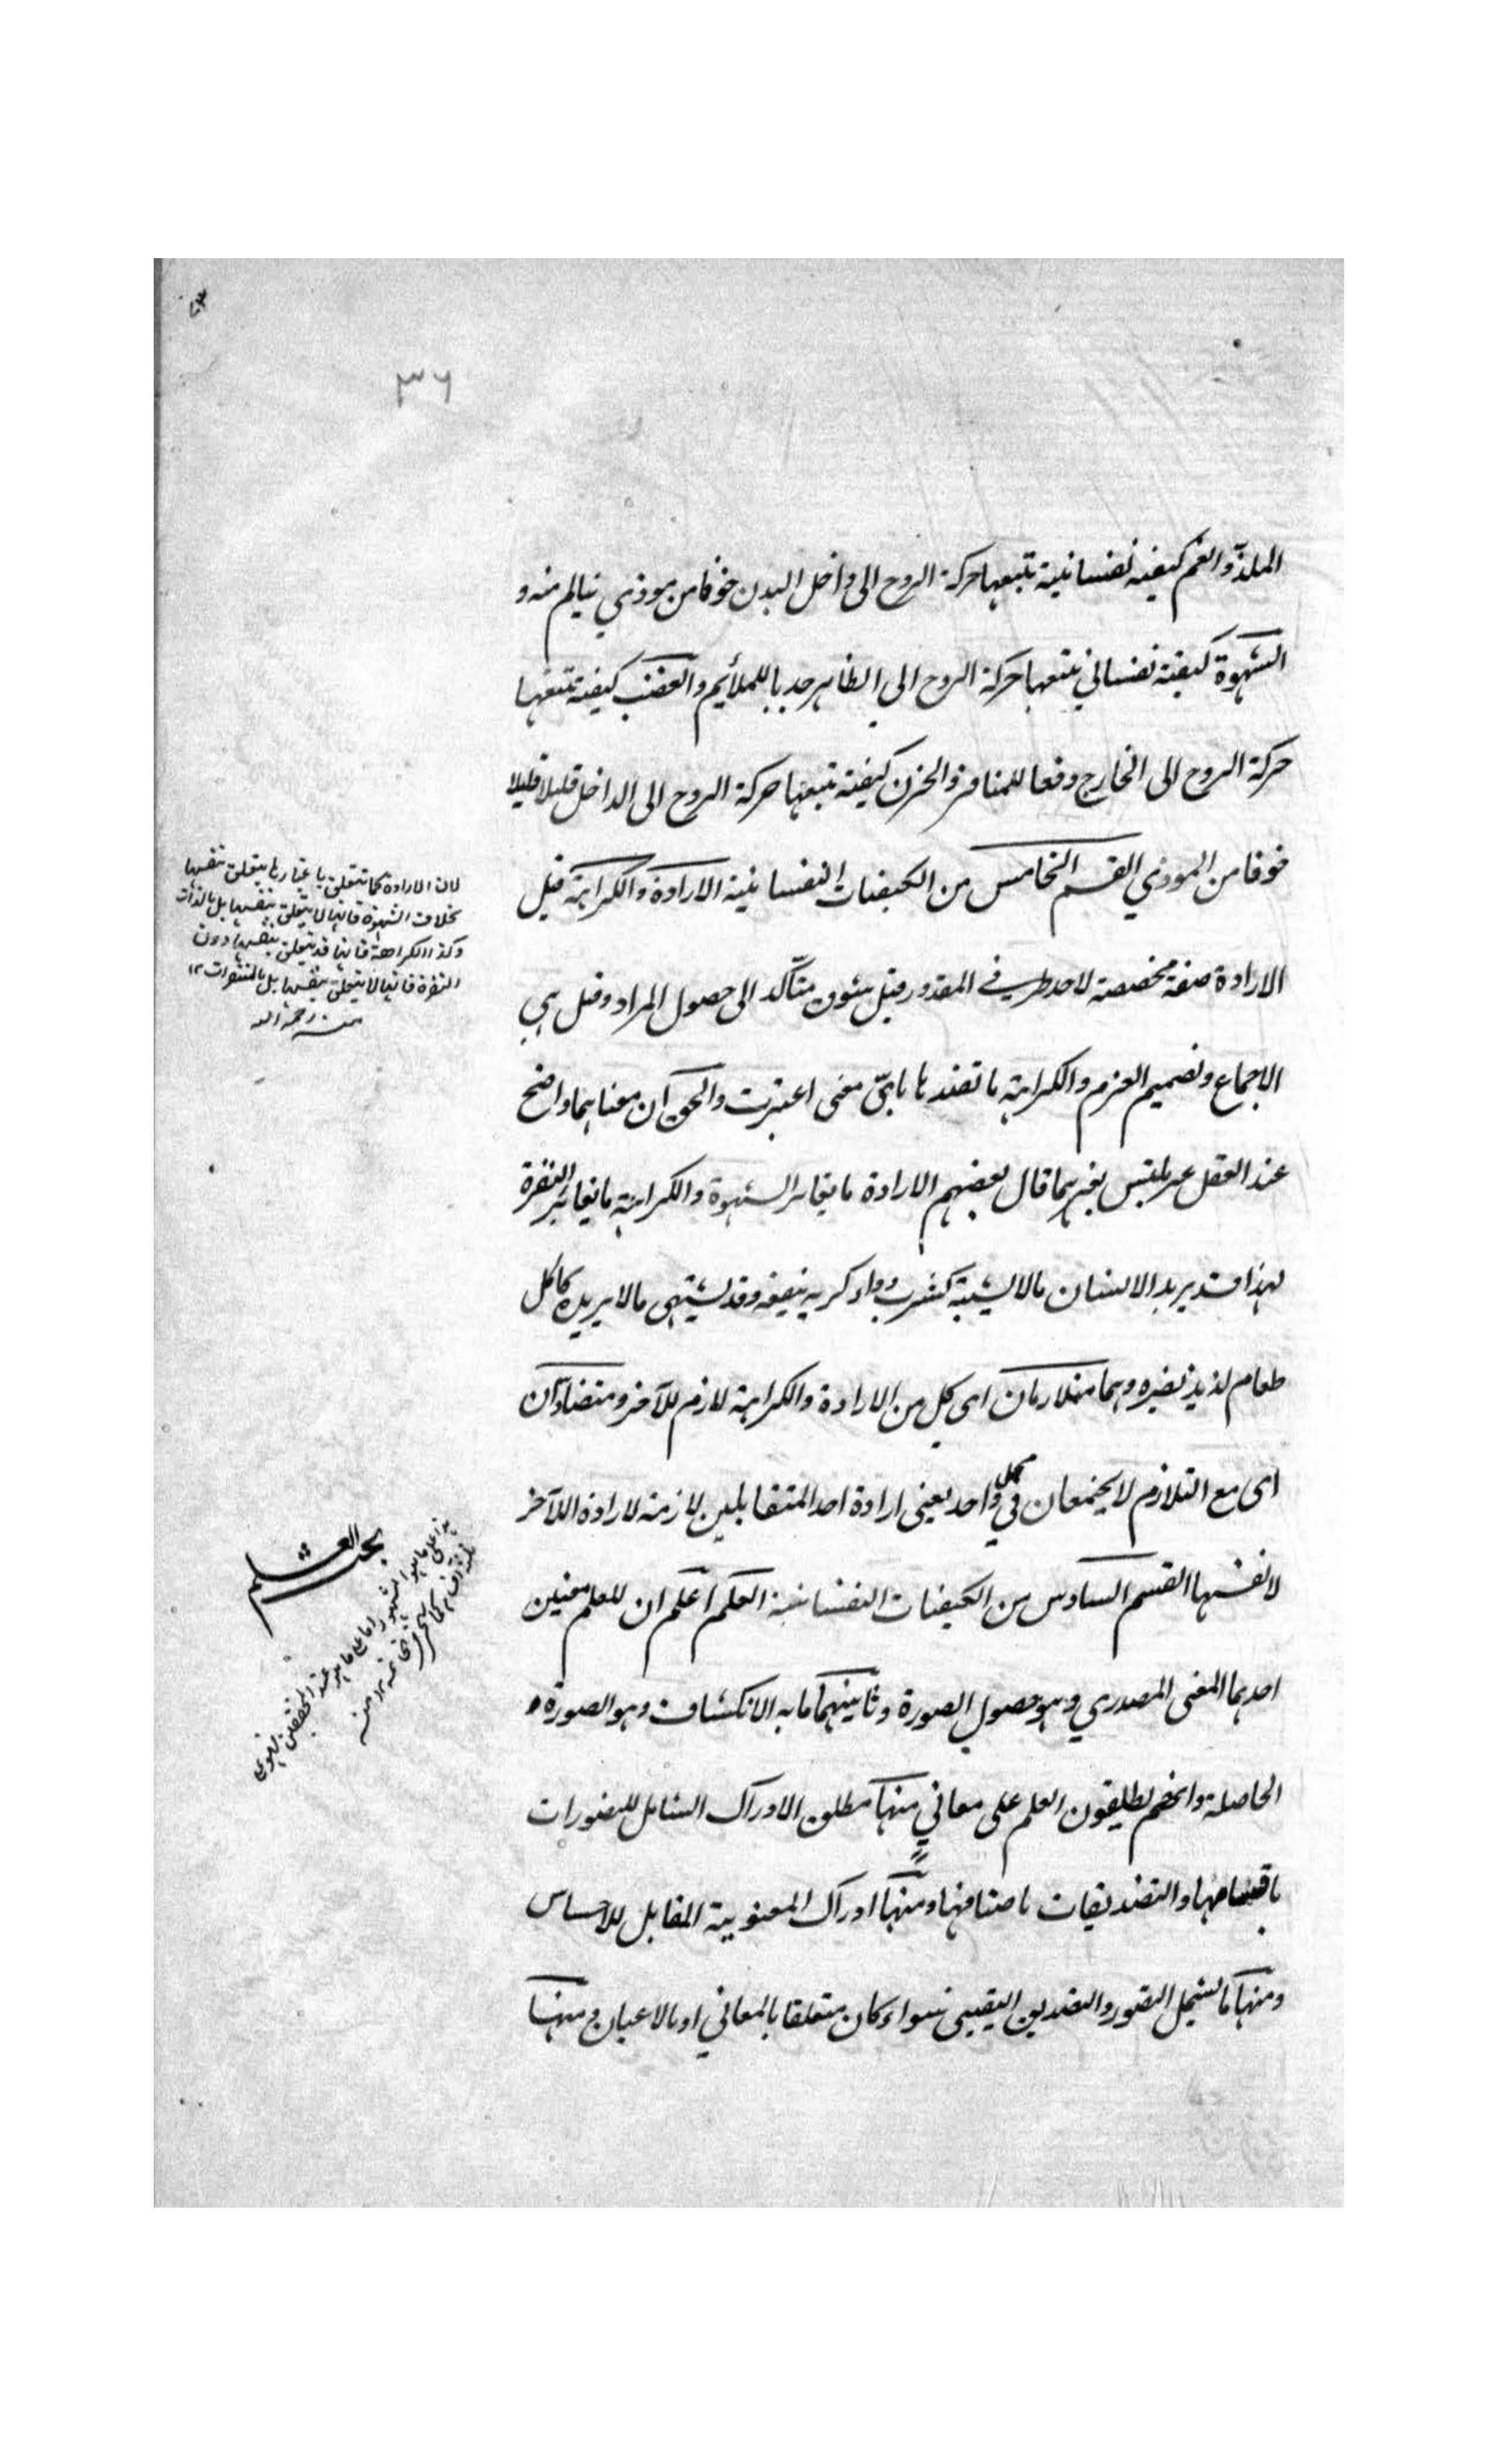 ٣٦
الملذ والغم كيفية نفسانية تتبعها حركة الروح الى داخل البدن خوفا من موذي يتالم منه و
الشهوة كيفية نفساني تتبعها حركة الروح الى الظاهر جذبا للملائم والغضب كيفية تتبعها
حركة الروح الى الخارج دفعا للمنافر والحزن كيفية تتبعها حركة الروح الى الداخل قليلا قليلا
خوفا من الموذي القسم الخامس من الكيفيات النفسانية الارادة والكراهة قيل
الارادة صفة مخصصة لاحد طرفي المقدور وقيل شوق متأكد الى حصول المراد وقيل هي
الاجماع وتصميم العزم والكراهة ما تضدها باىّ معنى اعتبرت والحق ان معناهما واضح
عند العقل غير ملتبس بغيرهما قال بعضهم الارادة ما يغاير الشهوة والكراهة ما يغاير النفرة
لهذا قد يريد الانسان مالا يشتهيه كشرب دواء كريه ينفعه وقد يشتهي مالا يريده كاكل
طعام لذيذ يضره وهما متلازمان اى كل من الارادة والكراهة لازم للآخر ومتضادان
اى مع التلازم لا يجتمعان في محل واحد يعني ارادة احد المتقابلين لازمة لارادة اللآخر
لا نفسها القسم السادس من الكيفيات النفسانية العلم اعلم ان للعلم معنيين
احدهما المعنى المصدري وهو حصول الصورة وثانيهما ما به الانكشاف وهو الصورة
الحاصلة وانهم يطلقون العلم على معاني منها مطلق الادراك الشامل للتصورات
باقسامها والتصديقات باصنافها ومنها ادراك المعنوية المقابل للاحساس
ومنها ما يشمل التصور والتصديق اليقيني سواء كان متعلقا بالمعاني او بالاعيان ومنها
لان الارادة كما تتعلق باغيارها يتعلق بنفسها
بخلاف الشهوة فانها لا يتعلق بنفسها بل بالذات
وكذا الكراهة فانها قد يتعلق بنفسها دون
النفرة فانها لا يتعلق بنفسها بل بالمنفورات ١٢
منه رحمه الله
بحث العلم